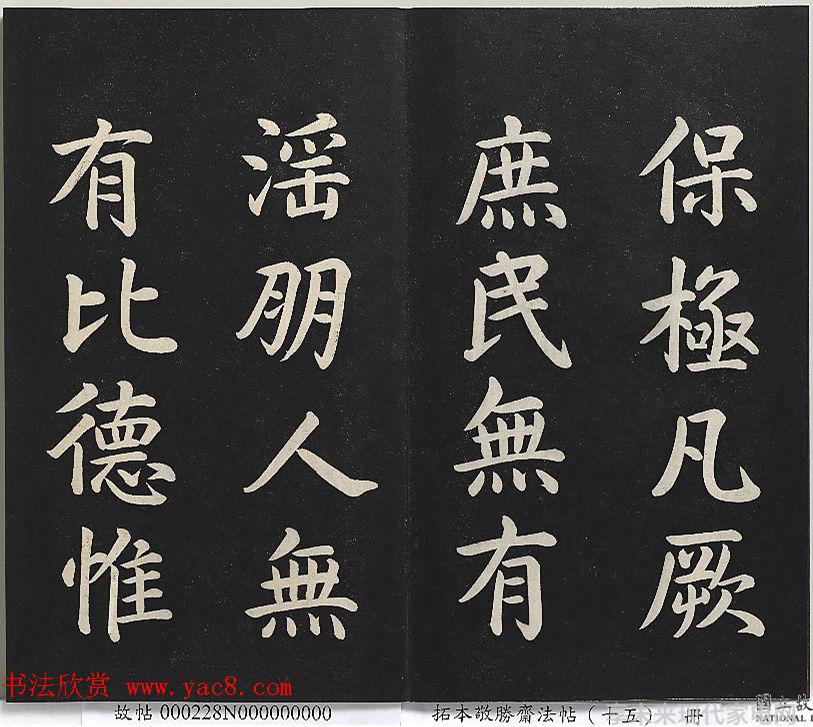 保極凡厥
庶民無有
淫朋人無
有比德惟
书法欣赏 www.yac8.com
故帖000228N000000000
拓本敬勝齋法帖（十五） 冊
國立故
NATIONAL